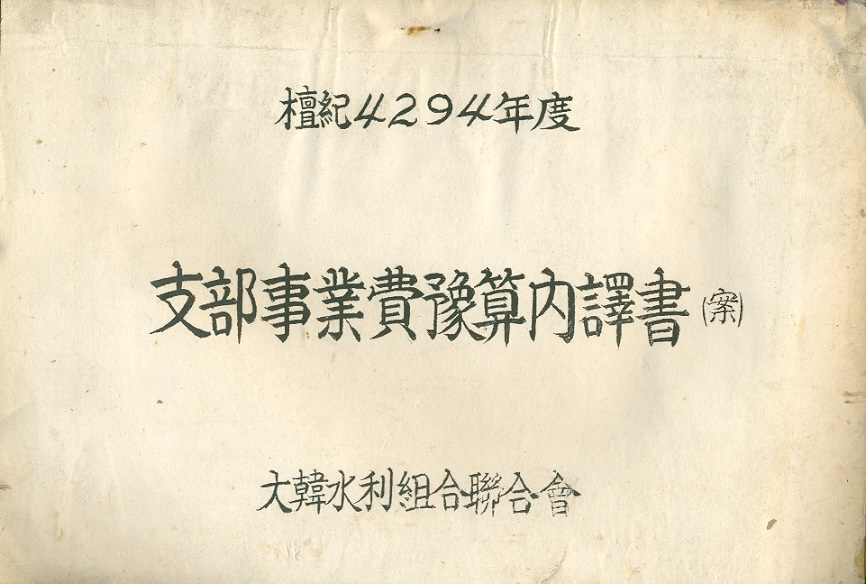 檀紀4294年度
支部事業費豫算內譯書(案)
大韓水利組合聯合會